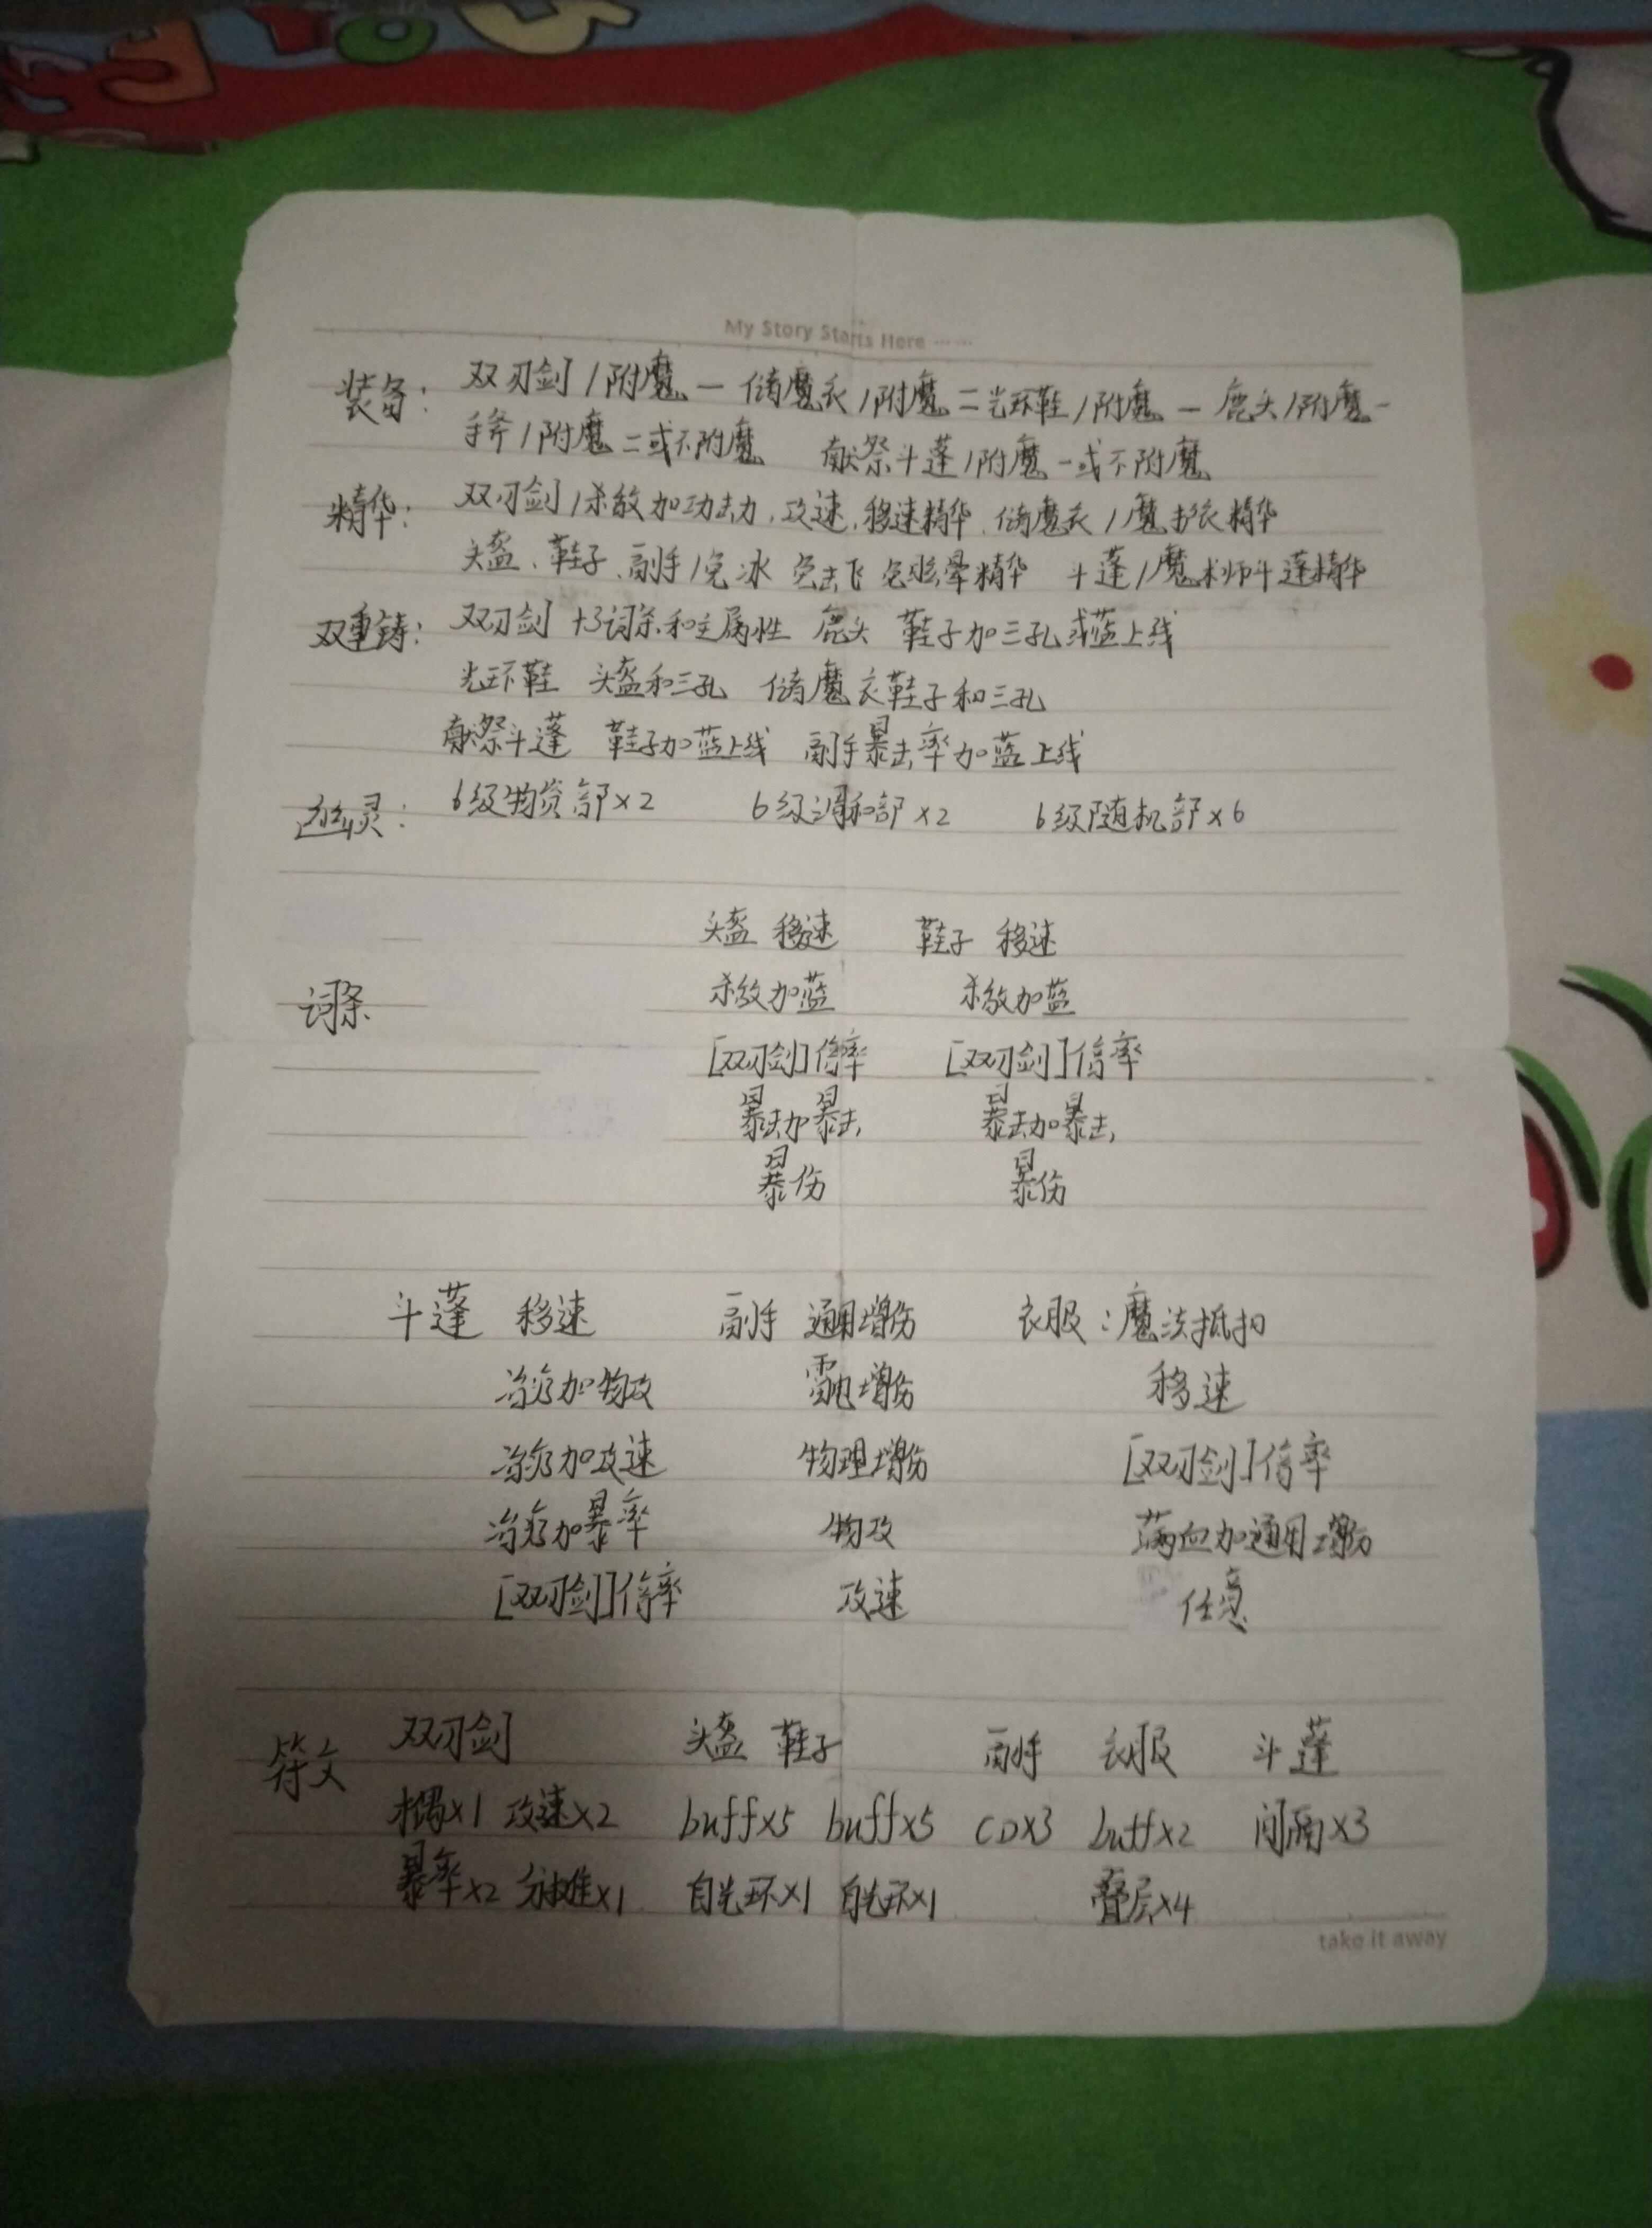 My Story Starts Here ······
装备： 双刃剑/附魔一 储魔衣/附魔二 光环鞋/附魔一 鹿头/附魔一
手斧/附魔二或不附魔 献祭斗蓬/附魔一或不附魔
精华： 双刃剑/杀敌加功击力，攻速，移速精华、储魔衣/魔护衣精华
头盔、鞋子、副手/免冰 免击飞 免眩晕精华 斗蓬/魔术师斗蓬精华
双重铸： 双刃剑 +3词条和主属性 鹿头 鞋子加三孔或蓝上线
光环鞋 头盔和三孔 储魔衣鞋子和三孔
献祭斗蓬 鞋子加蓝上线 副手暴击率加蓝上线
幽灵： 6级物资部×2 6级调和部×2 6级随机部×6
头盔 移速 鞋子 移速
词条 杀敌加蓝 杀敌加蓝
[双刃剑]倍率 [双刃剑]倍率
暴击加暴击 暴击加暴击
暴伤 暴伤
斗蓬 移速 副手 通用增伤 衣服：魔法抵扣
加物攻 雷电增伤 移速
加攻速 物理增伤 [双刃剑]倍率
加暴率 物攻 满血加通用增伤
[双刃剑]倍率 攻速 任意
符文 双刃剑 头盔 鞋子 副手 衣服 斗蓬
×1 攻速×2 buff×5 buff×5 CD×3 buff×2 间隔×3
暴率×2 ×1 自光环×1 自光环×1 叠层×4
take it away